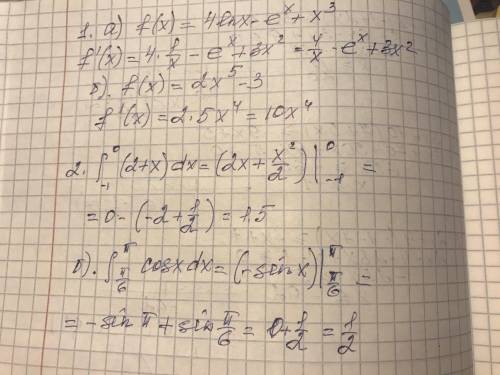 1. а) f(x) = 4lnx - e^x + x^3
f'(x) = 4 · 1/x - e^x + 3x^2 = 4/x - e^x + 3x^2
б). f(x) = 2x^5 - 3
f'(x) = 2 · 5x^4 = 10x^4
2. ∫_{-1}^{0} (2+x)dx = (2x + x^2/2) |_{-1}^{0} =
= 0 - (-2 + 1/2) = 1,5
б). ∫_{π/6}^{π} cosxdx = (-sinx) |_{π/6}^{π} =
= -sin π + sin π/6 = 0 + 1/2 = 1/2